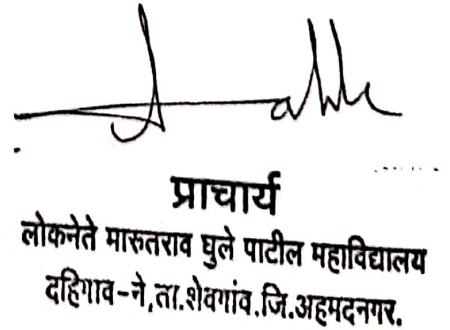 प्राचार्य
लोकनेते मारुतराव घुले पाटील महाविद्यालय
दहिगाव-ने,ता.शेवगांव.जि.अहमदनगर.